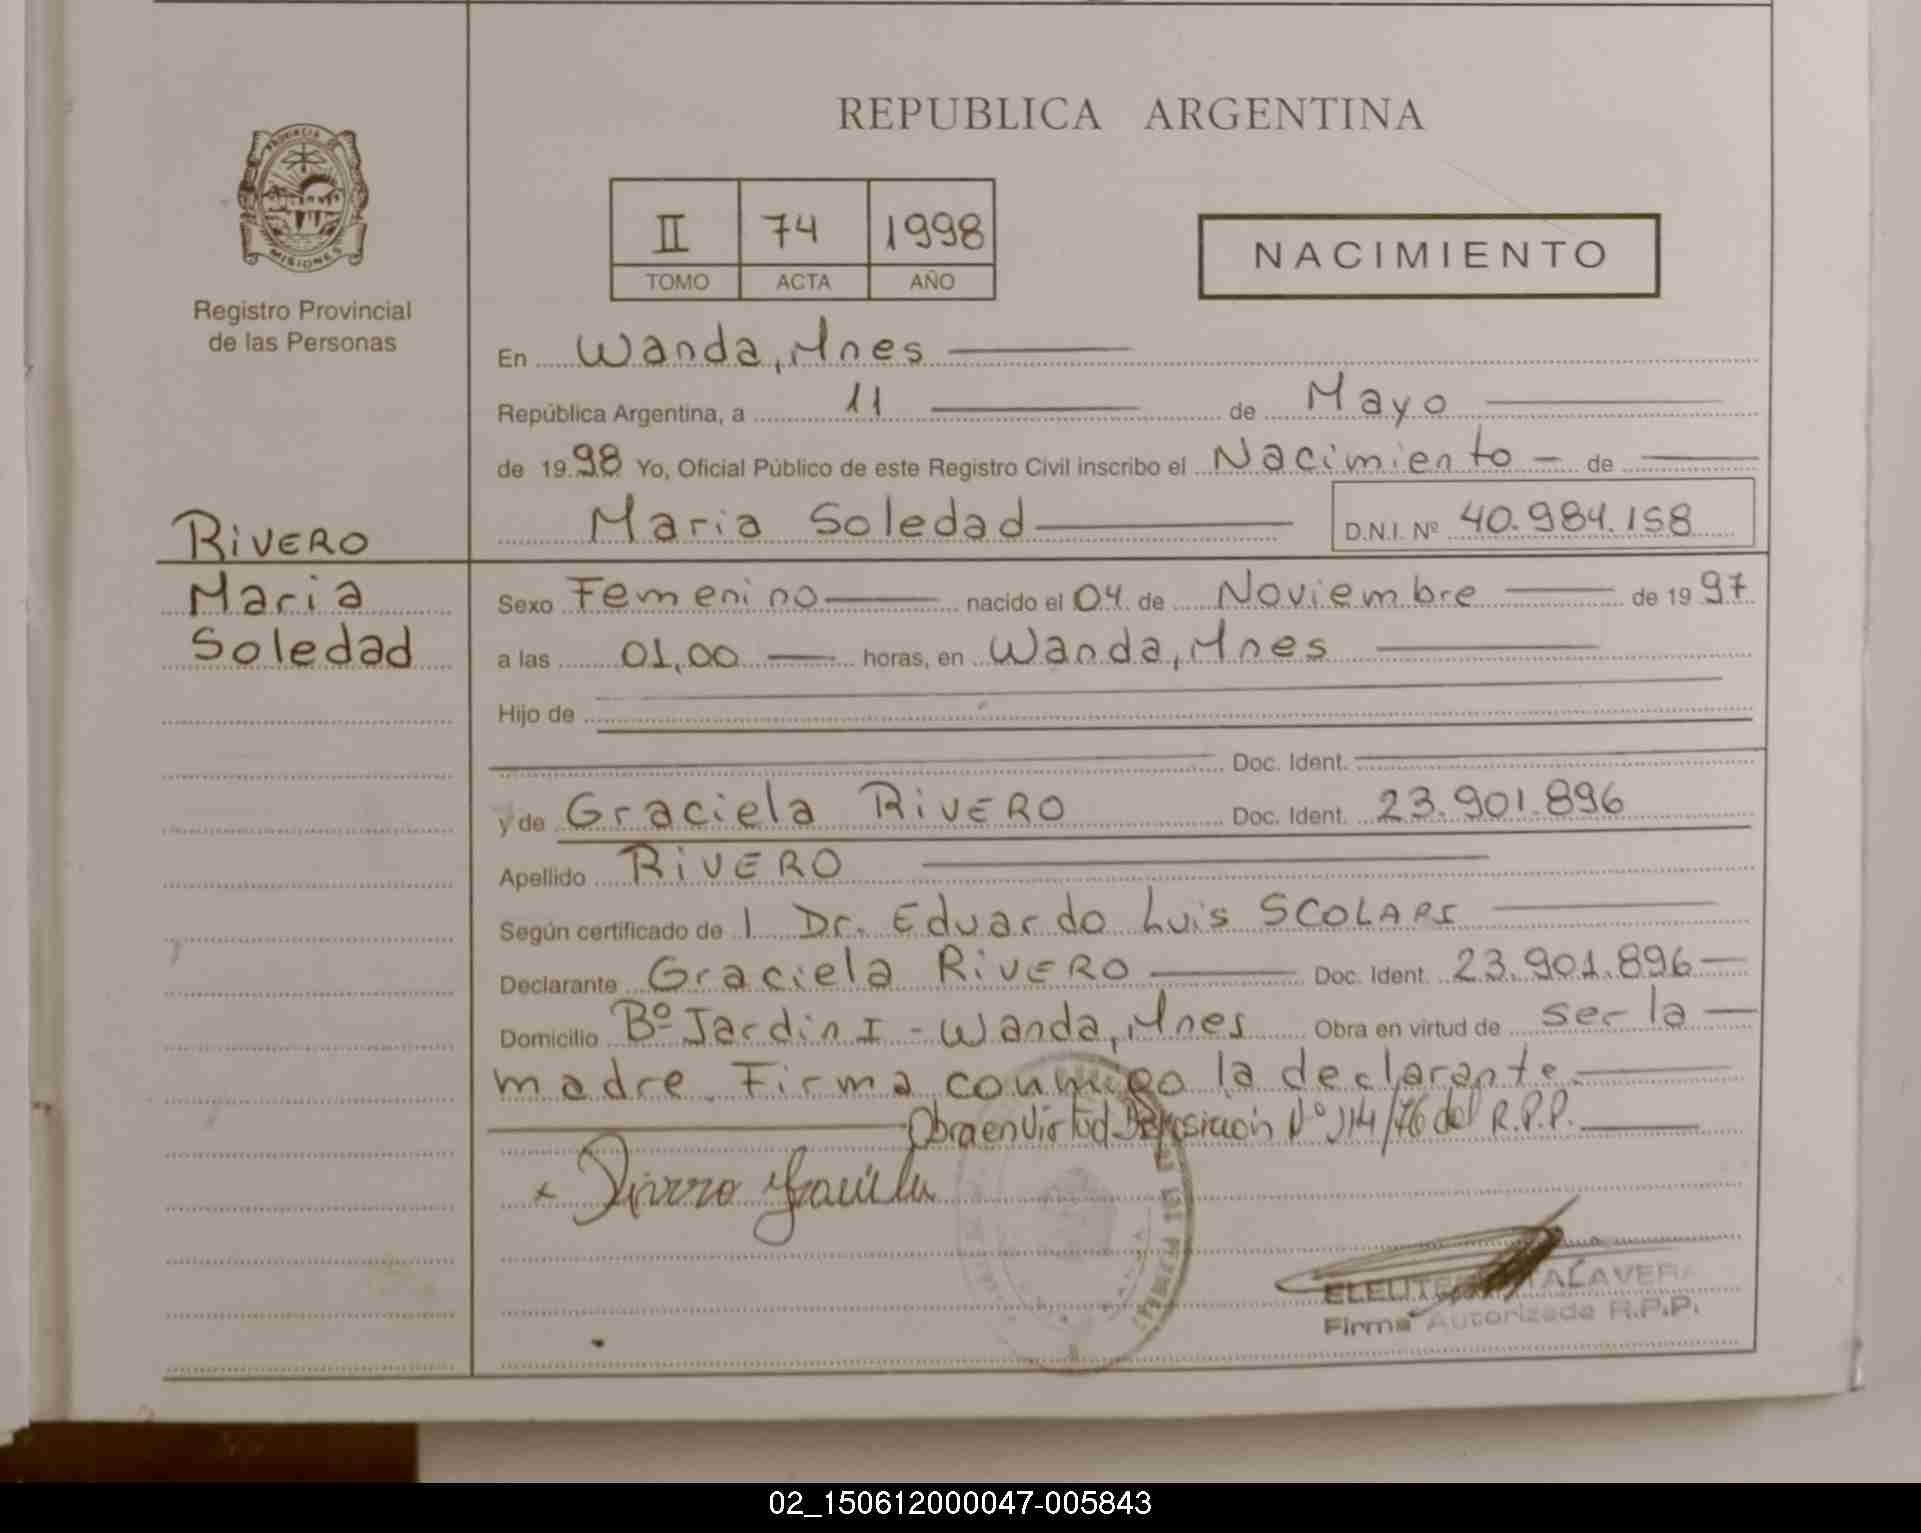 PROVINCIA DE
MISIONES
Registro Provincial
de las Personas
RIVERO
Maria
Soledad
REPUBLICA ARGENTINA
II 74 1998
TOMO ACTA AÑO
NACIMIENTO
En Wanda, Mnes
República Argentina, a 11 de Mayo
de 1998 Yo, Oficial Público de este Registro Civil inscribo el Nacimiento de
Maria Soledad D.N.I. Nº 40.984.158
Sexo Femenino nacido el 04 de Noviembre de 1997
a las 01,00 horas, en Wanda, Mnes
Hijo de
Doc. Ident.
y de Graciela RIVERO Doc. Ident. 23.901.896
Apellido RIVERO
Según certificado de l Dr. Eduardo Luis SCOLARI
Declarante Graciela RIVERO Doc. Ident. 23.901.896
Domicilio Bº Jardin I - Wanda, Mnes Obra en virtud de ser la
madre. Firma conmigo la declarante.
Obra en Virtud Disposición Nº 114/76 del R.P.P.
x Rivero Graciela
TALAVERA
Firma Autorizada R.P.P.
02_150612000047-005843